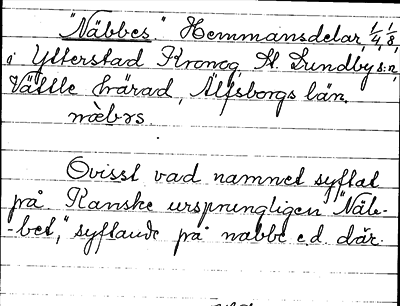 "Näbbes." Hemmansdelar, 1/4, 1/8,
i Ytterstad Kronog, St. Lundby s:n,
Vättle härad, Älfsborgs län.
næ̀bʌs.
Ovisst vad namnet syftat
på. Kanske ursprungligen "Näb-
-bet," syftande på nabbe e.d. där.